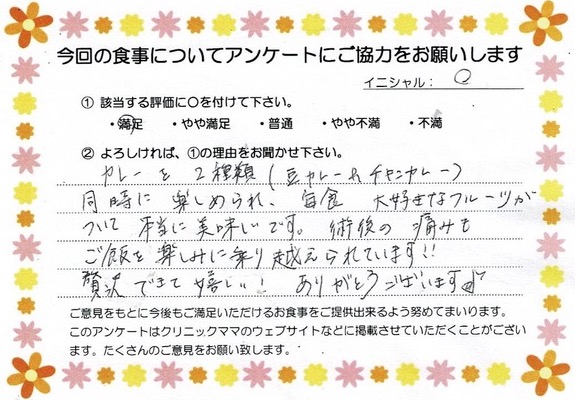 今回の食事についてアンケートにご協力をお願いします
イニシャル： O
① 該当する評価に○を付けて下さい。
・満足 ・やや満足 ・普通 ・やや不満 ・不満
② よろしければ、①の理由をお聞かせ下さい。
カレーを2種類（豆カレー&チキンカレー）
同時に楽しめられ、毎食 大好きなフルーツが
ついて 本当に美味しいです。術後の痛みも
ご飯を楽しみに乗り越えられています!!
贅沢できて嬉しい！ ありがとうございます
ご意見をもとに今後もご満足いただけるお食事をご提供出来るよう努めてまいります。
このアンケートはクリニックママのウェブサイトなどに掲載させていただくことがござい
ます。たくさんのご意見をお願い致します。